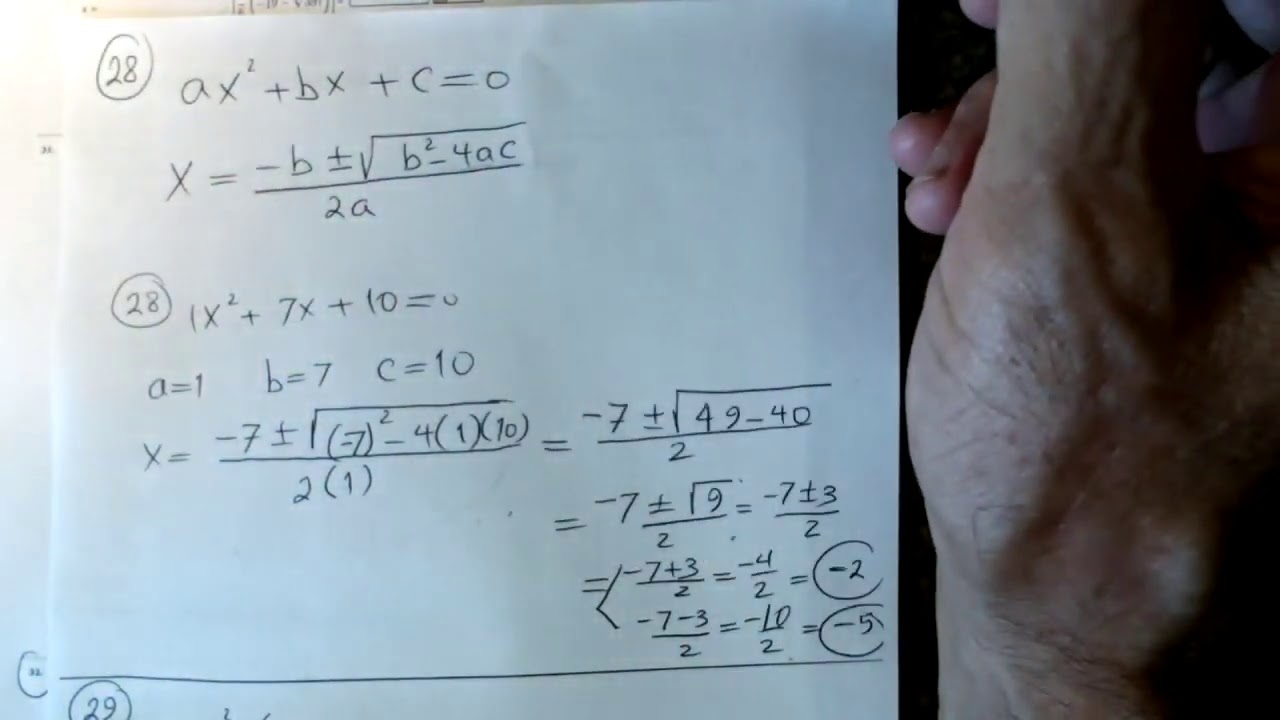 28 ax² + bx + c = 0
x = (-b ± √(b² - 4ac)) / 2a
28 1x² + 7x + 10 = 0
a=1 b=7 c=10
x = (-7 ± √((-7)² - 4(1)(10))) / 2(1) = (-7 ± √(49-40)) / 2
= (-7 ± √9) / 2 = (-7 ± 3) / 2
= (-7+3)/2 = -4/2 = -2
(-7-3)/2 = -10/2 = -5
29